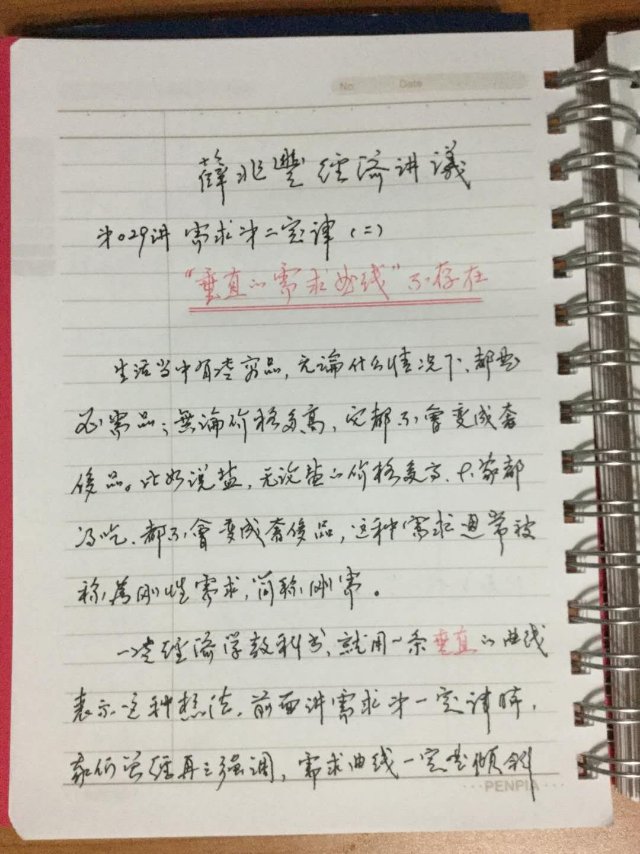 No.
Date
薛兆豐經濟讲議
第029讲 需求第二定律（二）
“垂直的需求曲线”不存在
生活当中有些商品，无論什么情况下，都是
必需品；無論价格多高，它都不會變成奢
侈品。比如说盐，无论盐的价格多高，大家都
得吃，都不會变成奢侈品，这种需求通常被
称為刚性需求，简称刚需。
一些经濟学教科书，就用一条垂直的曲线
表示这种想法。前面讲需求第一定律時，
我们曾经再三强调，需求曲线一定是倾斜
PENPIA